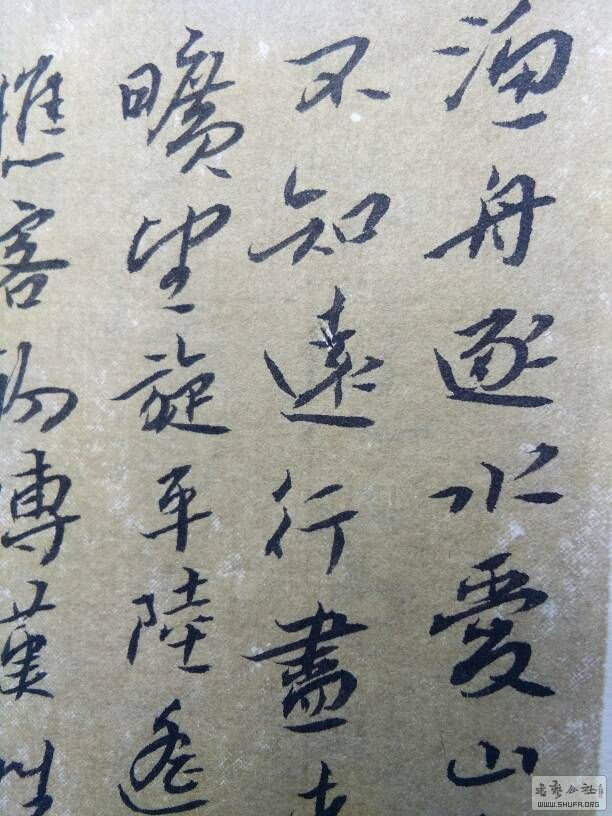 渔舟逐水愛山
不知遠行盡
曠望旋平陸遙
樵客初傳漢姓
書藝公社
WWW.SHUFA.ORG